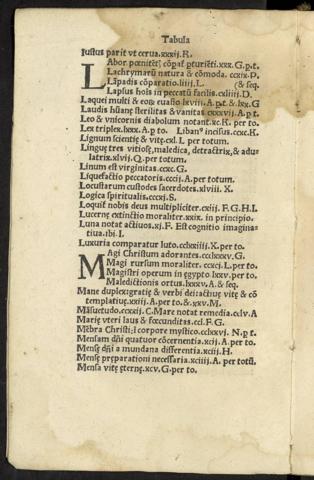 Tabula
Iustus parit vt cerua.xxxij.R.
LAbor pœnitētȩ cōpaſ pturiēti.xxx.G.p.t.
Lachrymarū natura & cōmoda.ccxix.P.
Lāpadis cōparatio.iiii.L. & seq.
Lapsus hoīs in peccatū facilis.cxliiii.D.
Laquei multi & eoꝝ euasio lxviii.A.p.t.& lxx.G
Laudis huānȩ sterilitas & vanitas cxxxvii.A.p.t.
Leo & vnicornis diabolum notant.xc.R. per to.
Lex triplex.lxxx.A.p to. Libanꝰ incisus.ccxc.K.
Lignum scientiȩ & vitȩ.cxl.L per totum.
Linguȩ tres vitiosȩ, maledica, detractrix, & adu
latrix.xlvij.Q.per totum.
Linum est virginitas.ccxc.G.
Liquefactio peccatoris.cccij.A.per totum.
Locustarum custodes sacerdotes.xlviii. X.
Logica spiritualis.cccxj.S.
Loquiſ nobis deus multipliciter.cxiij. F.G.H.I.
Lucernȩ extinctio moraliter.xxix. in principio.
Luna notat actiuos.xj.F. Est cognitio imagina
tiua.ibi.I.
Luxuria comparatur luto.cclxxiiii.X.per to.
MAgi Christum adorantes.cclxxxv.G.
Magi rursum moraliter.ccxcj.L.per to.
Magistri operum in egypto lxxv.per to.
Maledictionis ortus.lxxxv.A. & seq.
Mane duplex:gratiȩ & verbi dei:actiuȩ vitȩ & cō
templatiuȩ.xxiij.A.per to.& .xxv.M.
Māsuetudo.ccxxij.C.Mare notat remedia.ccl v.A
Mariȩ vteri laus & fœcunditas.ccl.F.G.
Mēbra Christi;l corpore mystico.cclxxvj.N.p t.
Mensam dn̄i quatuor cōcernentia.xcij.A.per to.
Mensȩ dn̄i a mundana differentia.xciij.H.
Mensȩ prȩparationi necessaria.xciiij.A. per totū.
Mensa vitȩ ȩternȩ.xcv.G.per to.